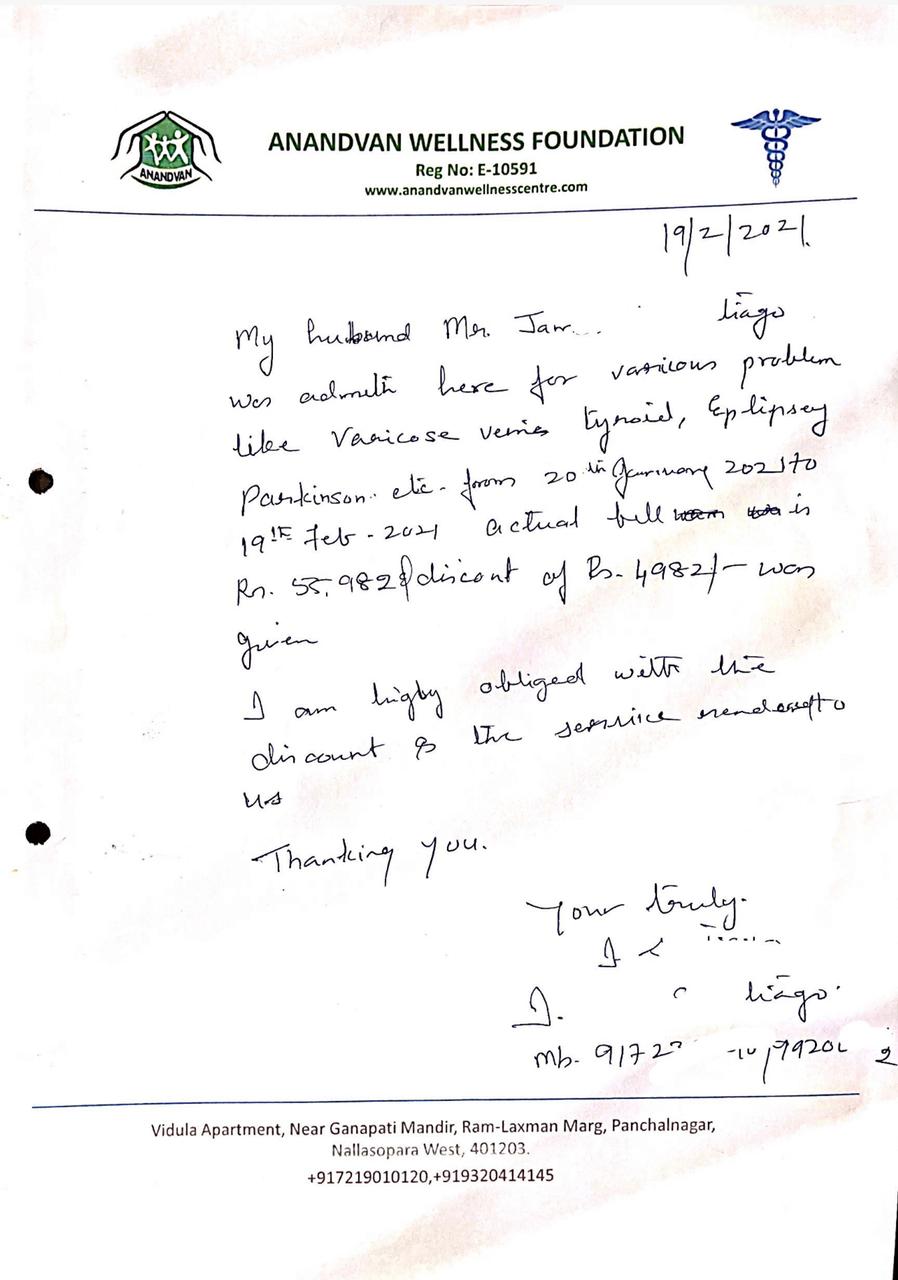 ANANDVAN
ANANDVAN WELLNESS FOUNDATION
Reg No: E-10591
www.anandvanwellnesscentre.com
19/2/2021.
My husband Mr. Jam tiago
was admith here for varicous problem
like Varicose venis tyroid, Eplipsey
Parkinson. etc. from 20th January 2021 to
19th Feb - 2021 actual bill is
Rs. 55,982 & discont of Rs. 4982/- was
given
I am higby obliged with the
discount & the service to
us
Thanking you.
Your truly.
I
I. tiago.
Mb. 9172
Vidula Apartment, Near Ganapati Mandir, Ram-Laxman Marg, Panchalnagar,
Nallasopara West, 401203.
+917219010120,+919320414145